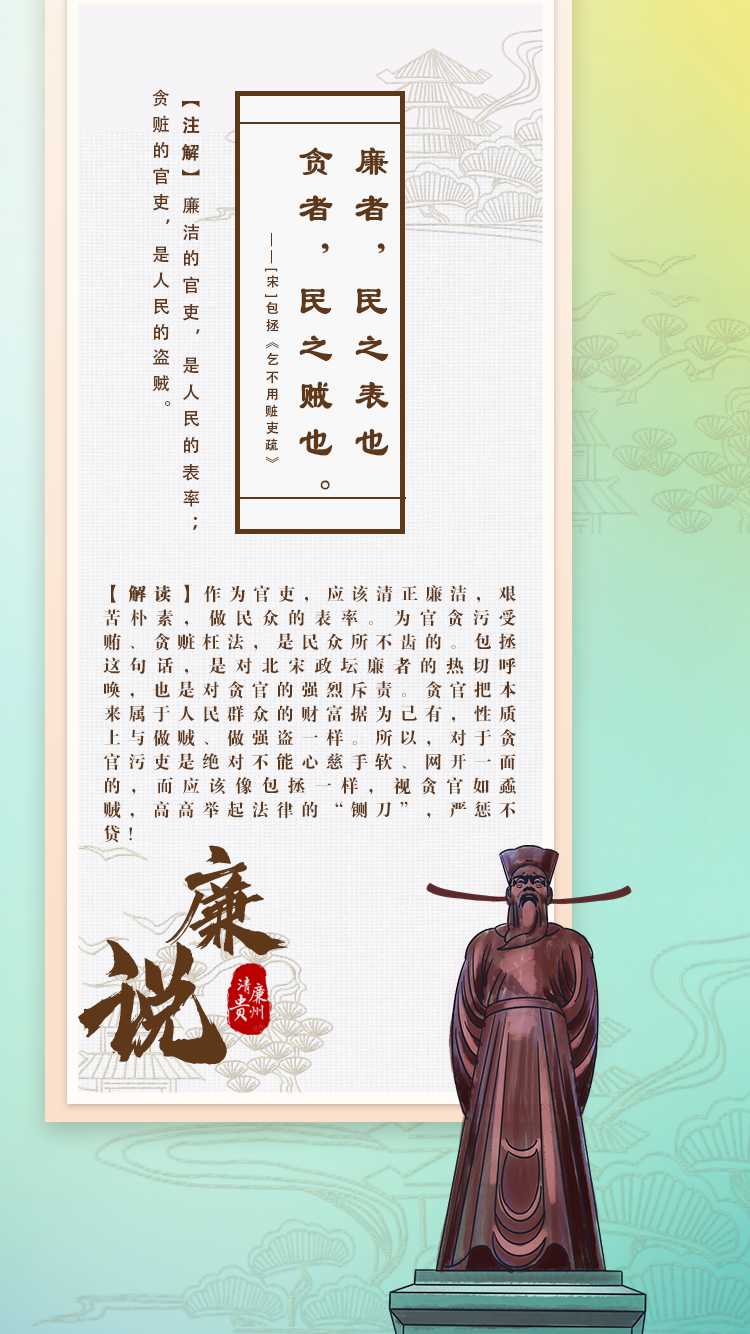 廉者，民之表也
贪者，民之贼也。
——[宋]包拯《乞不用赃吏疏》
【注解】廉洁的官吏，是人民的表率；
贪赃的官吏，是人民的盗贼。
【解读】作为官吏，应该清正廉洁，艰
苦朴素，做民众的表率。为官贪污受
贿、贪赃枉法，是民众所不齿的。包拯
这句话，是对北宋政坛廉者的热切呼
唤，也是对贪官的强烈斥责。贪官把本
来属于人民群众的财富据为己有，性质
上与做贼、做强盗一样。所以，对于贪
官污吏是绝对不能心慈手软、网开一面
的，而应该像包拯一样，视贪官如蟊
贼，高高举起法律的“铡刀”，严惩不
贷！
廉
说
清廉
贵州